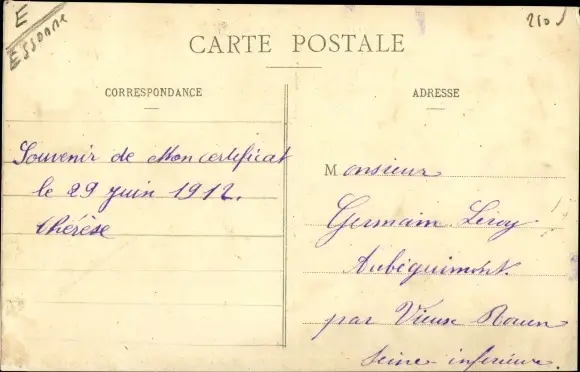 E
ESSONNE
210
CARTE POSTALE
CORRESPONDANCE
Souvenir de Mon certificat
le 29 juin 1912.
Thérèse
ADRESSE
Monsieur
Germain Leroy
Aubéguimont.
par Vieux Rouen
Seine inférieure.